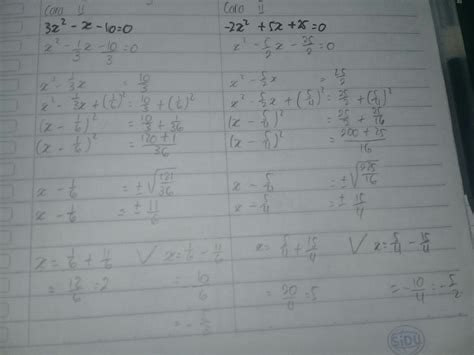 Cara II
3x² - x - 10 = 0
x² - 1/3 x - 10/3 = 0
x² - 1/3 x = 10/3
x² - 1/3 x + (1/6)² = 10/3 + (1/6)²
(x - 1/6)² = 10/3 + 1/36
(x - 1/6)² = 120+1/36
x - 1/6 = ± √121/36
x - 1/6 = ± 11/6
x = 1/6 + 11/6 ∨ x = 1/6 - 11/6
= 12/6 = 2 = - 10/6
= - 5/3
Cara II
-2x² + 5x + 25 = 0
x² - 5/2 x - 25/2 = 0
x² - 5/2 x = 25/2
x² - 5/2 x + (5/4)² = 25/2 + (5/4)²
(x - 5/4)² = 25/2 + 25/16
(x - 5/4)² = 200 + 25/16
x - 5/4 = ± √225/16
x - 5/4 = ± 15/4
x = 5/4 + 15/4 ∨ x = 5/4 - 15/4
= 20/4 = 5 = - 10/4 = - 5/2
SiDU